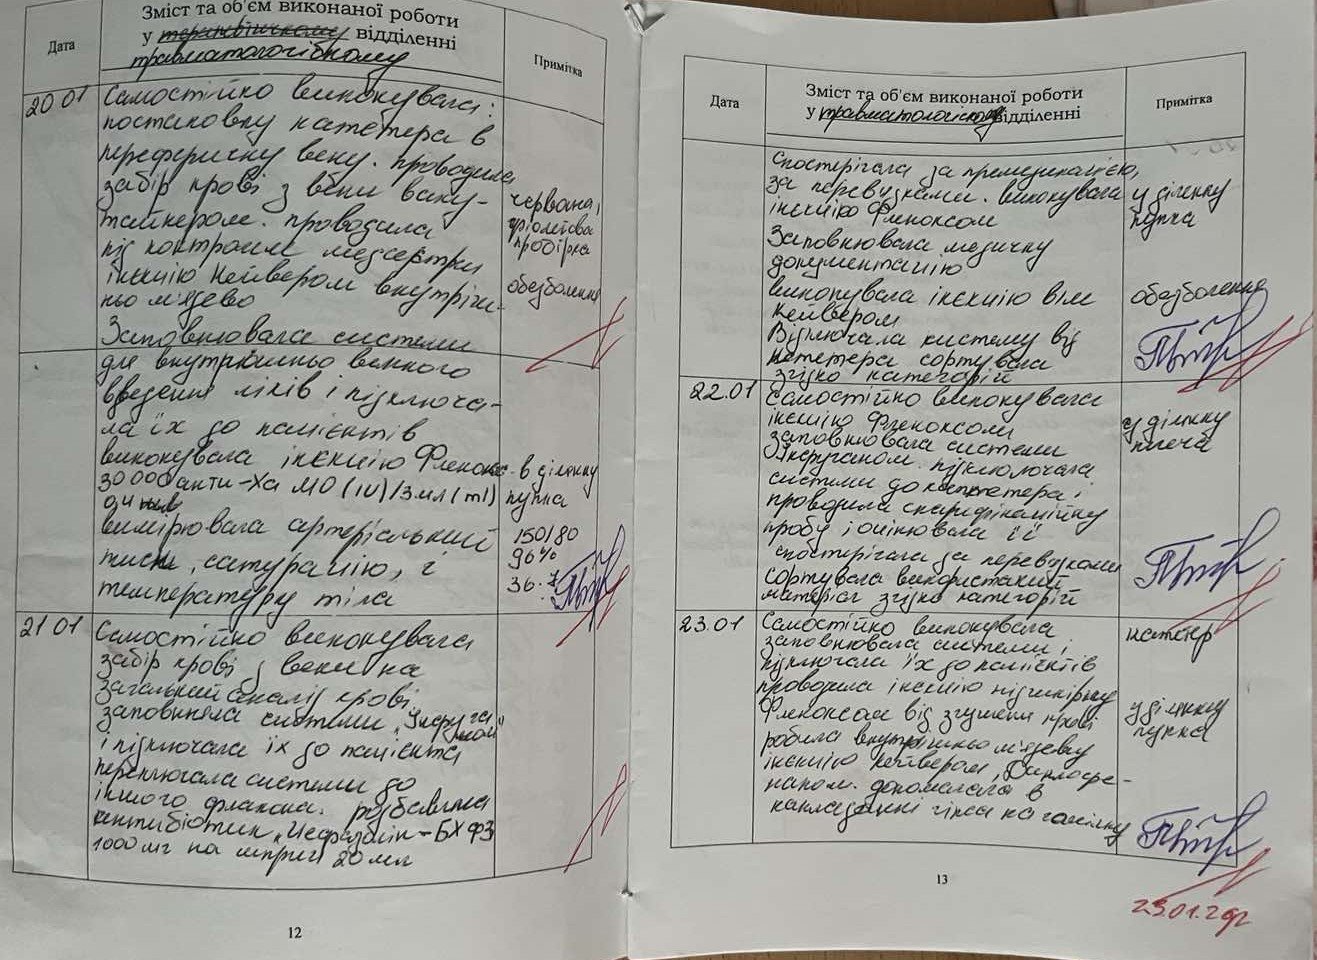 Дата
Зміст та об'єм виконаної роботи
у терапевтичному відділенні
травматологічному
Примітка
20 01
Самостійно виконувала:
постановку катетера в
переферичну вену. проводила
забір крові з вени ваку-
тайнером. проводила
під контролем медсестри
інєкцію Кейвером внутріш-
ньо мязево
Заповнювала системи
червона,
фіолетова
пробірка
обезболення
для внутрішньо венного
введення ліків і підключа-
ла їх до пацієнтів
виконувала інєкцію Фленокс
30 000 анти-Ха МО (IU)/3 мл (ml)
0,4 мл
вимірювала артеріальний
тиск, сатурацію, і
температуру тіла
в ділянку
пупка
150/80
96%
36.7
21 01
Самостійно виконувала
забір крові з вени на
загальний аналіз крові
заповнила системи "Укруга
ном"
і підключала їх до пацієнта
переключала системи до
іншого флакона. розбавляла
антибіотик "Цефазолін-БХФЗ
1000 мг на шприц 20 мл
12
Дата
Зміст та об'єм виконаної роботи
у травматологічному відділенні
Примітка
спостерігала за премедикацією,
за перевязками. виконувала
інєкцію Фленоксом
Заповнювала медичну
документацію
виконувала інєкцію в/м
кейвером
Відключала систему від
катетера сортувала
згідно категорій
у ділянку
пупка
обезболення
22.01
Самостійно виконувала
інєкцію Фленоксом
заповнювала системи
підключала
системи до катетера і
проводила скарифікаційну
пробу і оцінювала її
спостерігала за перевязками
сортувала використаний
матеріал згідно категорій
у ділянку
плеча
23.01
Самостійно виконувала
заповнювала системи і
підключала їх до пацієнтів
проводила інєкцію підшкірну
Фленоксом від згущення крові
робила внутрішньо мязеву
інєкцію кейвером, Диклофе-
наком. допомагала в
накладанні гіпса на гомілку
катетр
у ділянку
пупка
13
23.01.